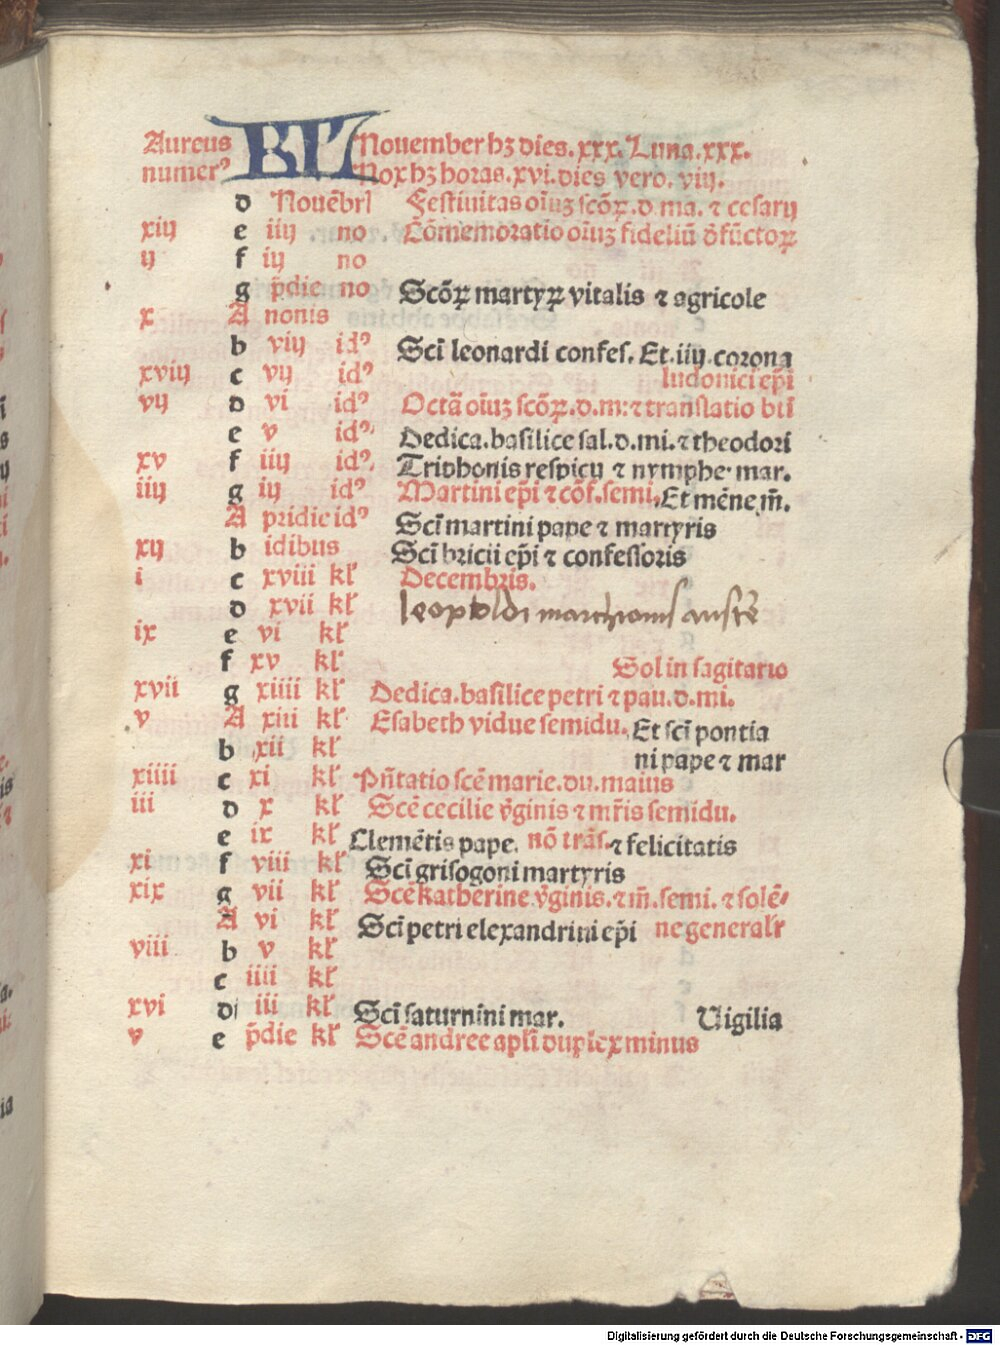 Aureus KL Nouember hꝫ dies. xxx. Luna. xxx.
numerꝰ Nox hꝫ horas. xvi. dies vero. viij.
d Nouēbrl Festiuitas oīuꝫ scōꝝ. d. ma. ⁊ cesarij
xiij e iiij no Cōmemoratio oīuꝫ fideliū d̄fūctoꝝ
ij f iij no
g p̄die no Scōꝝ martyꝝ vitalis ⁊ agricole
x A nonis
b viij idꝰ Scī leonardi confes. Et .iiij. corona
xviij c vij idꝰ ludouici ep̄i
vij d vi idꝰ Octā oīuꝫ scōꝝ. d. m: ⁊ translatio btī
e v idꝰ Dedica. basilice sal. d. mi. ⁊ theodori
xv f iiij idꝰ Triphonis respicij ⁊ nymphe mar.
iiij g iij idꝰ Martini ep̄i ⁊ cōf. semi. Et mēne m̄.
A pridie idꝰ Scī martini pape ⁊ martyris
xij b idibus Scī bricii ep̄i ⁊ confessoris
i c xviii kł Decembris.
d xvii kł leopoldi marchionis austē
ix e vi kł
f xv kł Sol in sagitario
xvii g xiiii kł Dedica. basilice petri ⁊ pau. d. mi.
v A xiii kł Esabeth vidue semidu. Et scī pontia
b xii kł ni pape ⁊ mar
xiiii c xi kł Pn̄tatio scē marie. du. maius
iii d x kł Scē cecilie v̄ginis ⁊ mr̄is semidu.
e ix kł Clemētis pape. nō trās. ⁊ felicitatis
xi f viii kł Scī grisogoni martyris
xix g vii kł Scē katherine v̄ginis. ⁊ m̄. semi. ⁊ solē-
A vi kł Scī petri elexandrini ep̄i ne generałr
viii b v kł
c iiii kł
xvi d iii kł Scī saturnini mar. Uigilia
v e p̄die kł Scē andree apłi duplex minus
Digitalisierung gefördert durch die Deutsche Forschungsgemeinschaft - DFG